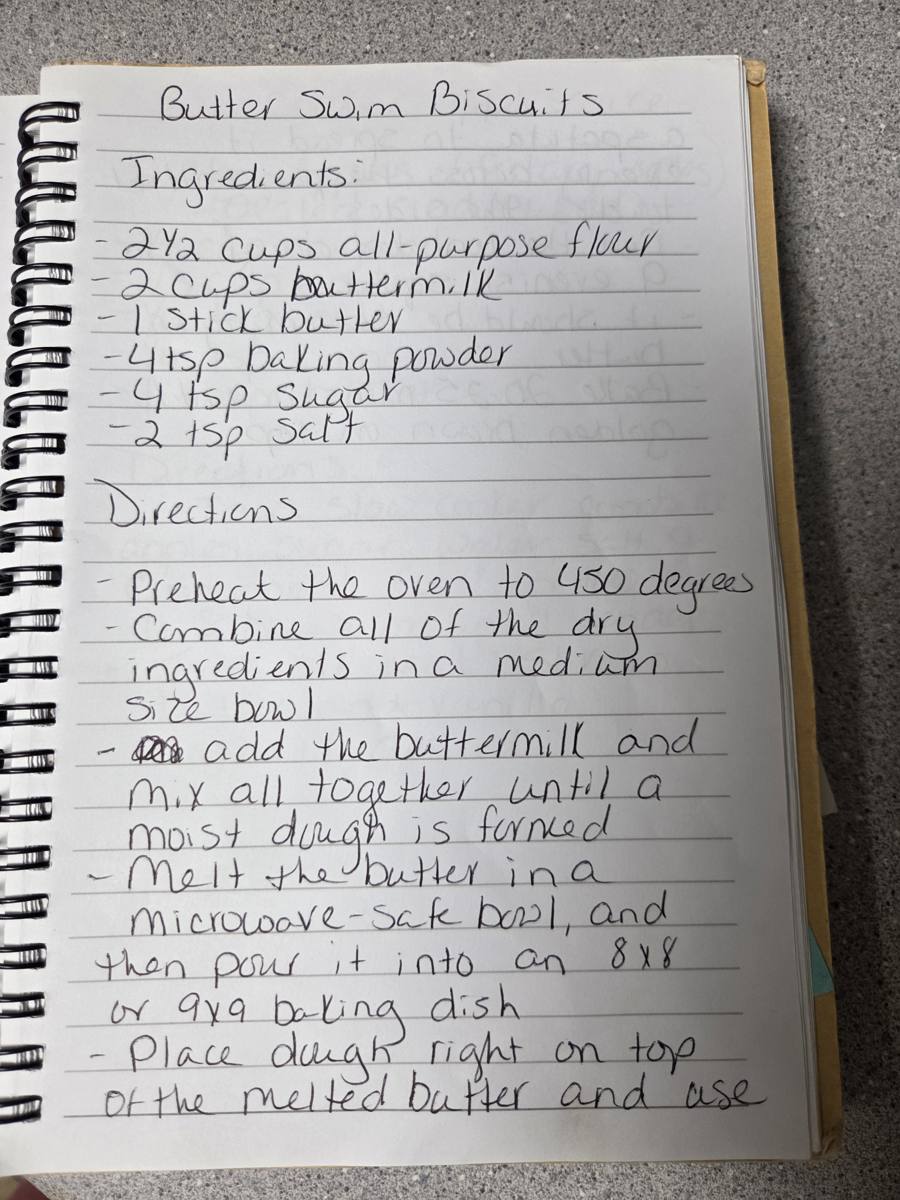 Butter Swim Biscuits
Ingredients:
- 2 1/2 cups all-purpose flour
- 2 cups buttermilk
- 1 stick butter
- 4 tsp baking powder
- 4 tsp sugar
- 2 tsp salt
Directions
- Preheat the oven to 450 degrees
- Combine all of the dry
ingredients in a medium
size bowl
- add the buttermilk and
mix all together until a
moist dough is formed
- Melt the butter in a
microwave-safe bowl, and
then pour it into an 8x8
or 9x9 baking dish
- Place dough right on top
of the melted butter and use